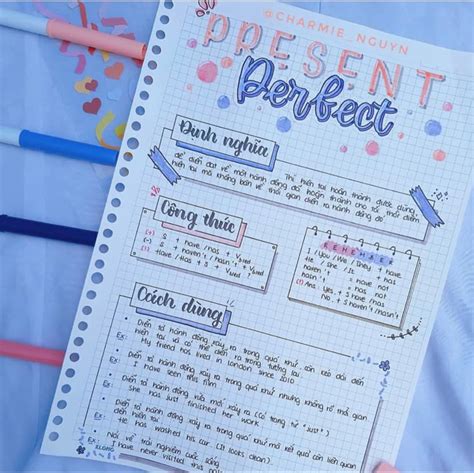 @CHARMIE_NGUYN
PRESENT
Perfect
Định nghĩa
Thì hiện tại hoàn thành được dùng
để diễn đạt về một hành động đã hoàn thành cho tới thời điểm
hiện tại mà không bàn về thời gian diễn ra hành động đó
Công thức
(+) S + have / has + V3/ed
(-) S + haven't / hasn't + V3/ed
Have / Has + S + V3/ed
REMEMBER
I / You / We / They + have
He / She / It + has
haven't = have not
hasn't = has not
(!) Ans: Yes, S + have / has
No, S + haven't / hasn't
Cách dùng
Diễn tả hành động xảy ra trong quá khứ còn kéo dài đến
hiện tại và có thể diễn ra trong tương lai
Ex: My friend has lived in London since 2010
Diễn tả hành động xảy ra trong quá khứ nhưng không rõ thời gian
Ex: I have seen this film
Diễn tả hành động vừa mới xảy ra (có trạng từ "just")
Ex: She has just finished her work
Diễn tả hành động xảy ra trong quá khứ mà kết quả còn liên quan
đến hiện tại
Ex: He has washed his car (It looks clean).
Nói về trải nghiệm cuộc sống
Ex: I have never visited this